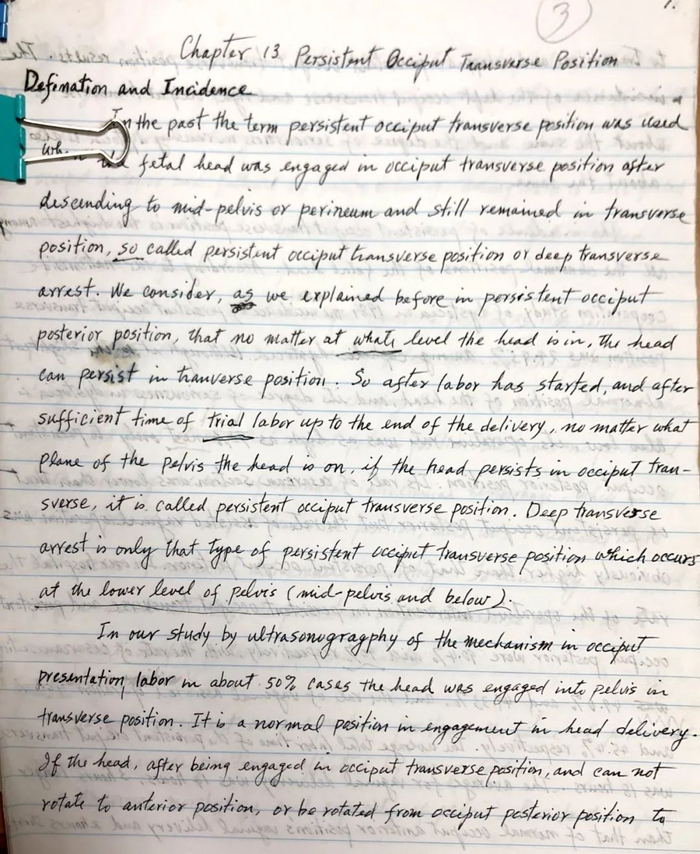 3
Chapter 13 Persistent Occiput Transverse Position
Defimation and Incidence
In the past the term persistent occiput transverse position was used
fetal head was engaged in occiput transverse position after
descending to mid-pelvis or perineum and still remained in transverse
position, so called persistent occiput transverse position or deep transverse
arrest. We consider, as we explained before in persistent occiput
posterior position, that no matter at whats level the head is in, the head
can persist in tranverse position. So after labor has started, and after
sufficient time of trial labor up to the end of the delivery, no matter what
plane of the pelvis the head is on, if the head persists in occiput tran-
sverse, it is called persistent occiput transverse position. Deep transverse
arrest is only that type of persistent occiput transverse position which occurs
at the lower level of pelvis (mid-pelvis and below).
In our study by ultrasonogragphy of the mechanism in occiput
presentation labor in about 50% cases the head was engaged into pelvis in
transverse position. It is a normal position in engagement in head delivery.
If the head, after being engaged in occiput transverse position, and can not
rotate to anterior position, or be rotated from occiput posterior position to